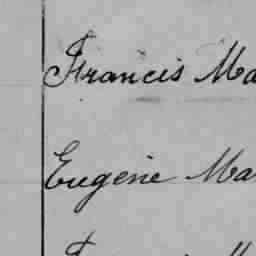 Francis Ma
Eugene Ma